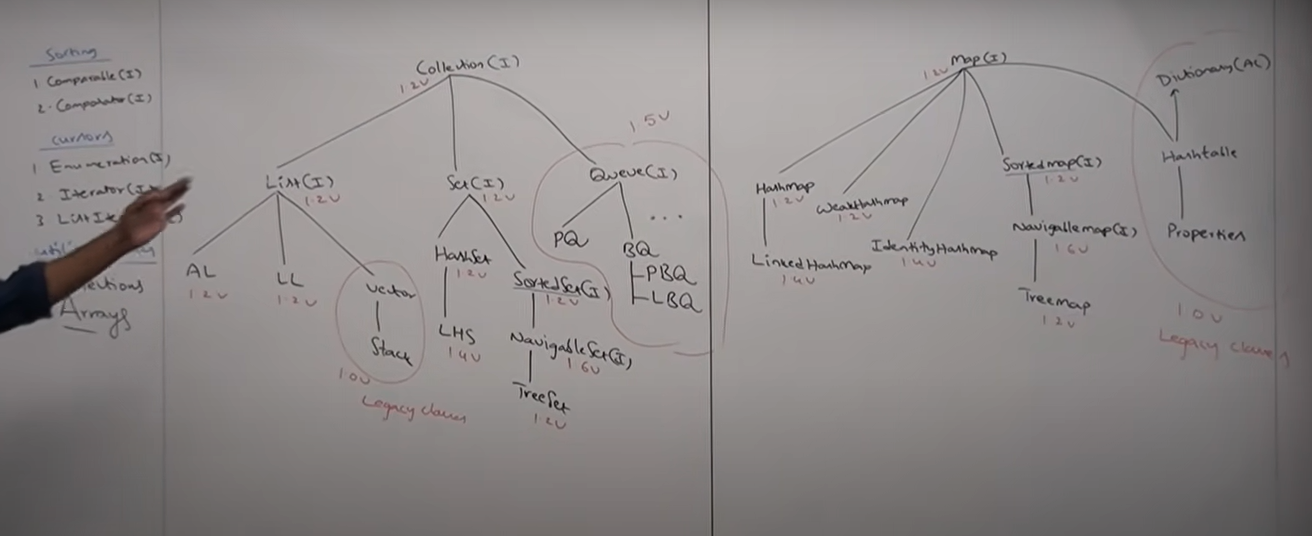 Sorting
1 Comparable(I)
2. Comparator(I)
cursors
1 Enumeration(I)
2. Iterator(I)
3 List
Arrays
Collection(I)
1.2v
List(I)
1.2v
AL
1.2v
LL
1.2v
Vector
Stack
1.0v
Legacy classes
Set(I)
1.2v
HashSet
1.2v
LHS
1.4v
SortedSet(I)
1.2v
NavigableSet(I)
1.6v
TreeSet
1.2v
1.5v
Queue(I)
PQ
BQ
...
PBQ
LBQ
Map(I)
1.2v
Hashmap
1.2v
LinkedHashmap
1.4v
WeakHashmap
1.2v
IdentityHashmap
1.4v
Sortedmap(I)
1.2v
Navigablemap(I)
1.6v
Treemap
1.2v
Dictionary(AC)
Hashtable
Properties
1.0v
Legacy classes